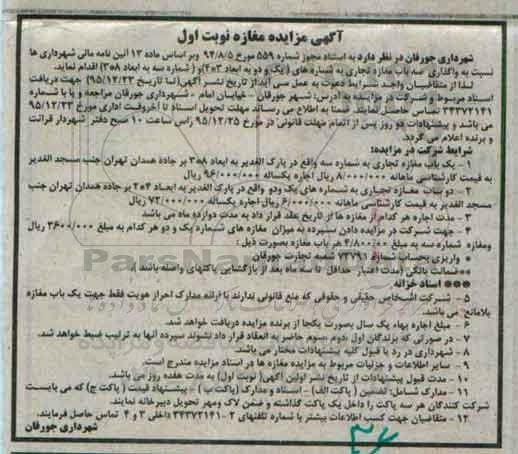 آگهی مزایده مغازه نوبت اول
شهرداری جورقان در نظر دارد به استناد مجوز شماره ۵۵۹ مورخ ۹۴/۸/۵ وبر اساس ماده ۱۳ آئین نامه مالی شهرداری ها
نسبت به واگذاری سه باب مغازه تجاری به شماره های ( یک و دو به ابعاد ۴×۲)و ( شماره سه به ابعاد ۸×۳) اقدام نماید.
لذا از متقاضیان واجد شرایط دعوت به عمل می آید از تاریخ نشر آگهی(تا تاریخ ۹۵/۱۲/۲۳) جهت دریافت
اسناد مربوط و شرکت در مزایده به آدرس: شهر جورقان - خیابان امام - شهرداری جورقان مراجعه و یا با شماره
۳۴۳۷۲۱۴۱ تماس حاصل نمایند. ضمنا به اطلاع می رساند مهلت تحویل اسناد تا آخروقت اداری مورخ ۹۵/۱۲/۲۳
می باشد و پیشنهادات دو روز پس از اتمام مهلت قانونی در مورخ ۹۵/۱۲/۲۵ راس ساعت ۱۰ صبح دفتر شهردار قرائت
و برنده اعلام می گردد.
شرایط شرکت در مزایده:
۱ - یک باب مغازه تجاری به شماره سه واقع در پارک الغدیر به ابعاد ۸×۳ بر جاده همدان تهران جنب مسجد الغدیر
به قیمت کارشناسی ماهانه ۸/۰۰۰/۰۰۰ ریال اجاره یکساله ۹۶/۰۰۰/۰۰۰ ریال
۲ - دو باب مغازه تجاری به شماره های یک ودو واقع در پارک الغدیر به ابعاد ۴×۲ بر جاده همدان تهران جنب
مسجد الغدیر به قیمت کارشناسی ماهانه ۶/۰۰۰/۰۰۰ ریال اجاره یکساله ۷۲/۰۰۰/۰۰۰ ریال
۳ - مدت اجاره هر کدام از مغازه ها از تاریخ عقد قرار داد به مدت دوازده ماه می باشد
۴ - جهت شرکت در مزایده دادن سپرده به میزان مغازه های شماره یک و دو هر کدام به مبلغ ۳۶۰۰/۰۰۰ ریال
ومغازه شماره سه به مبلغ ۴/۸۰۰/۰۰ هر باب مغازه بصورت ذیل :
* واریزی بحساب شماره ۷۳۷۹۱ شعبه تجارت جورقان
**ضمانت بانکی (مدت اعتبار حداقل تا سه ماه بعد از بازگشایی پاکتهای واصله باشد )
*** اسناد خزانه
۵ - شرکت اشخاص حقیقی و حقوقی که منع قانونی ندارند با ارائه مدارک احراز هویت فقط جهت یک باب مغازه
بلامانع می باشد.
۶ - مبلغ اجاره بهاء یک سال بصورت یکجا از برنده مزایده دریافت خواهد شد.
۷ - در صورتی که برندگان اول ،دوم ،سوم حاضر به انعقاد قرار داد نشوند سپرده آنها به ترتیب ضبط خواهد شد.
۸ - شهرداری در رد یا قبول کلیه پیشنهادات مختار می باشد.
۹ - سایر اطلاعات و جزئیات مربوط به مزایده مغازه ها در اسناد مزایده مندرج است.
۱۰ - مدت قبول پیشنهادات از تاریخ نشر اولین آگهی( نوبت اول) به مدت هفده روز می باشد.
۱۱ - مدارک شامل: تضمین ( پاکت الف) - اسناد و مدارک (پاکت ب ) - پیشنهاد قیمت ( پاکت ج) که می بایست
شرکت کنندگان هر سه پاکت را داخل یک پاکت گذاشته و ضمن لاک ومهر تحویل دبیرخانه نمایند.
۱۲ - متقاضیان جهت کسب اطلاعات بیشتر با شماره تلفنهای ۲-۳۴۳۷۲۱۴۱ داخلی ۳ و ۴ تماس حاصل فرمایند.
شهرداری جورقان